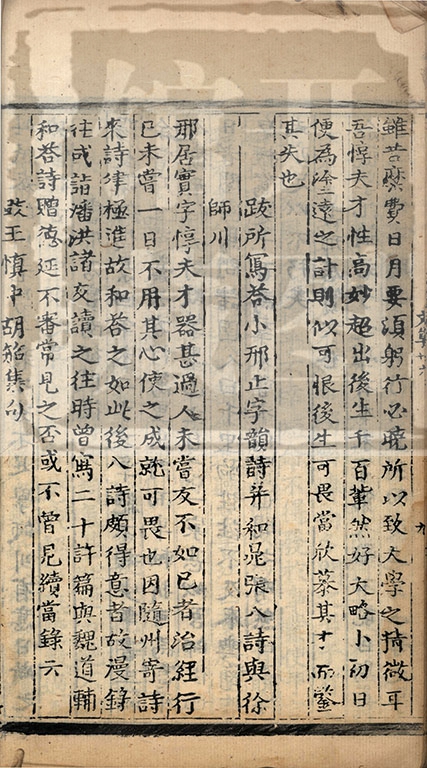 雖若糜費日月要須躬行必曉所以致大學之精微耳
吾惇夫才性高妙超出後生千百輩然好大略小初日
便為塗遠之計則似可恨後生可畏當欣慕其才而鑒
其失也
跋所寫荅小邢止字韻詩并和晁張八詩與徐
師川
邢居實字惇夫才器甚過人未嘗友不如己者治經行
己未嘗一日不用其心使之成就可畏也因隨州寄詩
來詩律極進故和荅之如此後八詩頗得意者故漫錄
往或詣潘洪諸友讀之往時曾寫二十許篇與魏道輔
和荅詩贈德延不審常見之否或不曾見續當錄六
跋王慎中胡笳集句